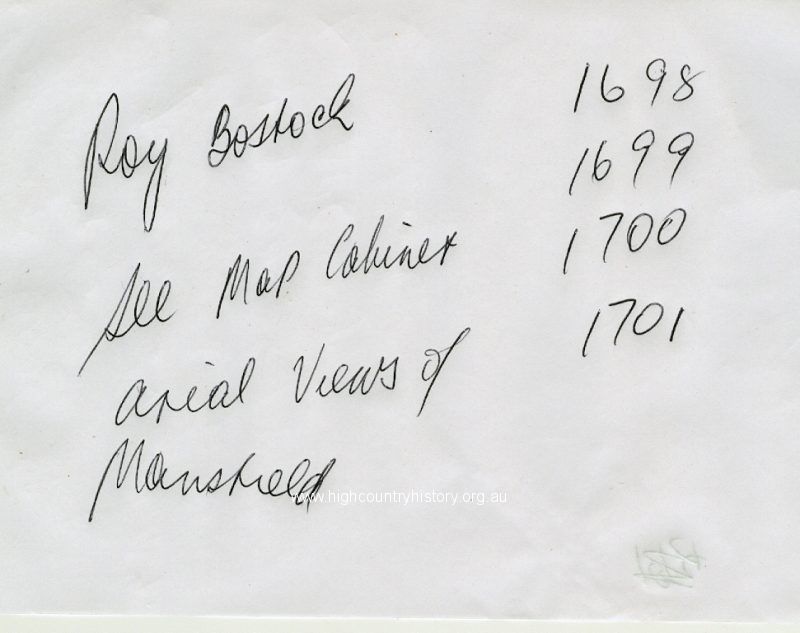 Roy Bostock
1698
1699
See Map Cabinet
1700
arial Views of
1701
Mansfield
www.highcountryhistory.org.au